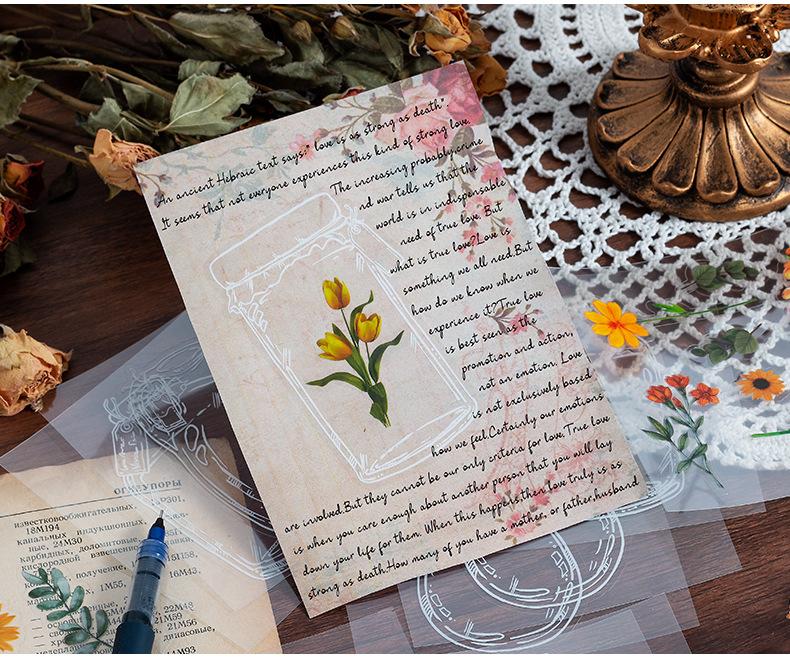 An ancient Hebraic text says:" love is as strong as death".
It seems that not everyone experiences this kind of strong love.
The increasing probably,crime
nd war tells us that the
world is in indispensable
need of true love. But
what is true love?Love is
something we all need.But
how do we know when we
experience it?True love
is best seen as the
promotion and action,
not an emotion. Love
is not exclusively based
how we feel.Certainly our emotions
are involved.But they cannot be our only criteria for love.True love
is when you care enough about another person that you will lay
down your life for them. When this happens,then love truly is as
strong as death.How many of you have a mother, or father,husband
ОГНЕУПОРЫ
известковообжигательных, 9М301,
18М194
канальных индукционных
ные, 24М30
карбидных, доломитовые
кислородно взвешенного
получение, 1М55,
16М43,
22М48
двиасовые,
14М93